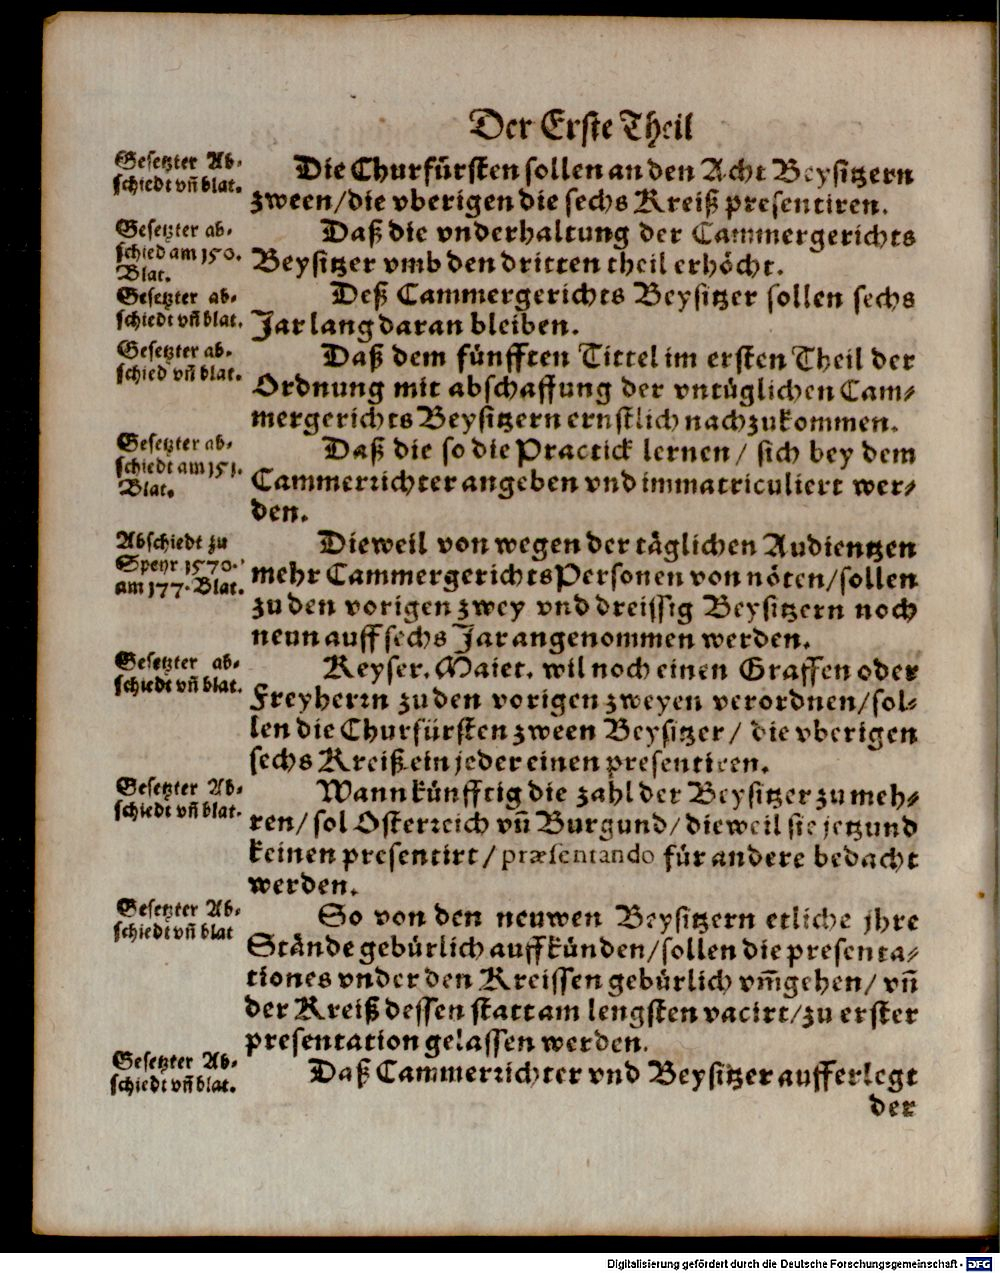 Der Erste Theil
Gesetzter Ab-
schiedt vñ blat.
Die Churfürsten sollen an den Acht Beysitzern
zween/die vberigen die sechs Kreiß presentiren.
Gesetzter ab-
schied am 150.
Blat.
Daß die vnderhaltung der Cammergerichts
Beysitzer vmb den dritten theil erhöcht.
Gesetzter ab-
schiedt vñ blat.
Deß Cammergerichts Beysitzer sollen sechs
Jar lang daran bleiben.
Gesetzter ab-
schied vñ blat.
Daß dem fünfften Tittel im ersten Theil der
Ordnung mit abschaffung der vntüglichen Cam-
mergerichts Beysitzern ernstlich nachzukommen.
Gesetzter ab-
schiedt am 151.
Blat.
Daß die so die Practick lernen / sich bey dem
Cammerrichter angeben vnd immatriculiert wer-
den.
Abschiedt zu
Speyr 1570.
am 177. Blat.
Dieweil von wegen der täglichen Audientzen
mehr Cammergerichts Personen von nöten/sollen
zu den vorigen zwey vnd dreissig Beysitzern noch
neun auff sechs Jar angenommen werden.
Gesetzter ab-
schiedt vñ blat.
Keyser. Maiet. wil noch einen Graffen oder
Freyherrn zu den vorigen zweyen verordnen/sol-
len die Churfürsten zween Beysitzer / die vberigen
sechs Kreiß ein jeder einen presentiren.
Gesetzter Ab-
schiedt vñ blat.
Wann künfftig die zahl der Beysitzer zu meh-
ren/ sol Osterreich vñ Burgund/ dieweil sie jetzund
keinen presentirt / præsentando für andere bedacht
werden.
Gesetzter Ab-
schiedt vñ blat
So von den neuwen Beysitzern etliche jhre
Stände gebürlich auffkünden/sollen die presenta-
tiones vnder den Kreissen gebürlich vm̃gehen/ vñ
der Kreiß dessen statt am lengsten vacirt/zu erster
presentation gelassen werden.
Gesetzter Ab-
schiedt vñ blat.
Daß Cammerrichter vnd Beysitzer aufferlegt
der
Digitalisierung gefördert durch die Deutsche Forschungsgemeinschaft - DFG